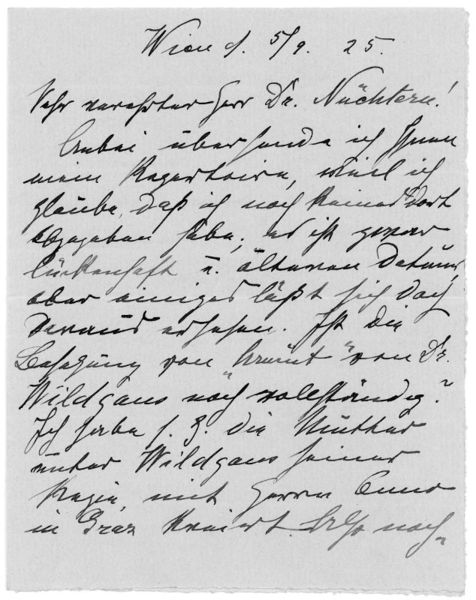 Wien d. 5/9. 25.
Sehr verehrter Herr Dr. Nüchtern!
Anbei übersende ich Ihnen
mein Repertoire, weil ich
glaube, daß ich noch keines dort
abgegeben habe; es ist zwar
lückenhaft u. älteren Datums,
aber einiges läßt sich doch
daraus ersehen. Ist die
Besetzung von „Armut“ von Dr.
Wildgans noch vollständig?
Ich habe s. Z. die Mutter
unter Wildgans seiner
Regie, mit Herrn Onno
in Graz kreiert. Also noch-